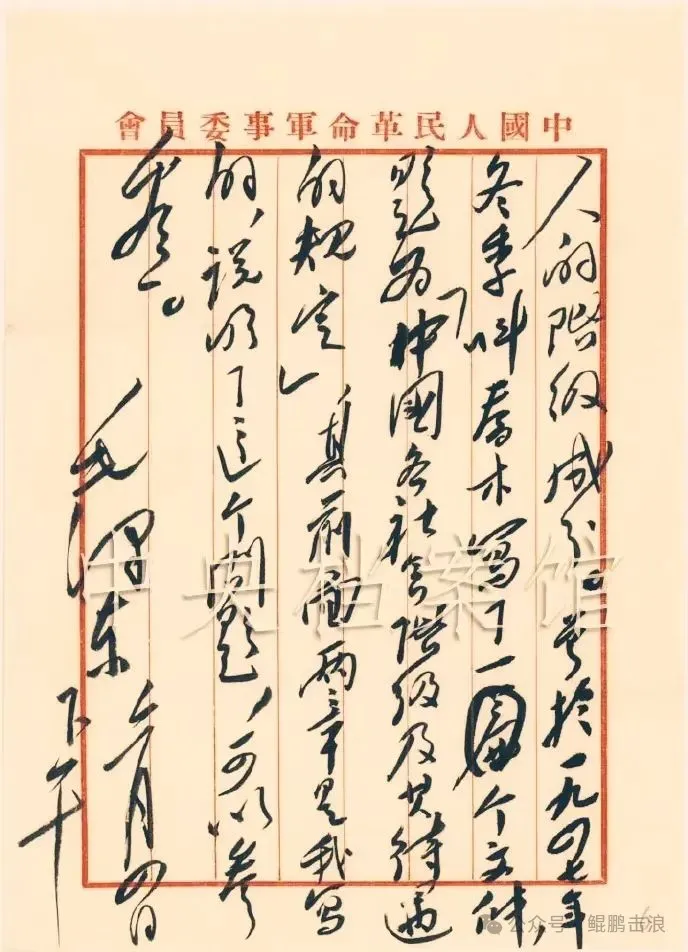 中國人民革命軍事委員會
人的階級成分。曾於一九四七年
冬季叫喬木寫了一个文件,
題为「中國各社会階级及其待遇
的規定」,其前面两章是我写
的,說明了这个問題,可以参
看。
毛澤东 六月四日
下午
中央档案馆
公众号·鲲鹏击浪